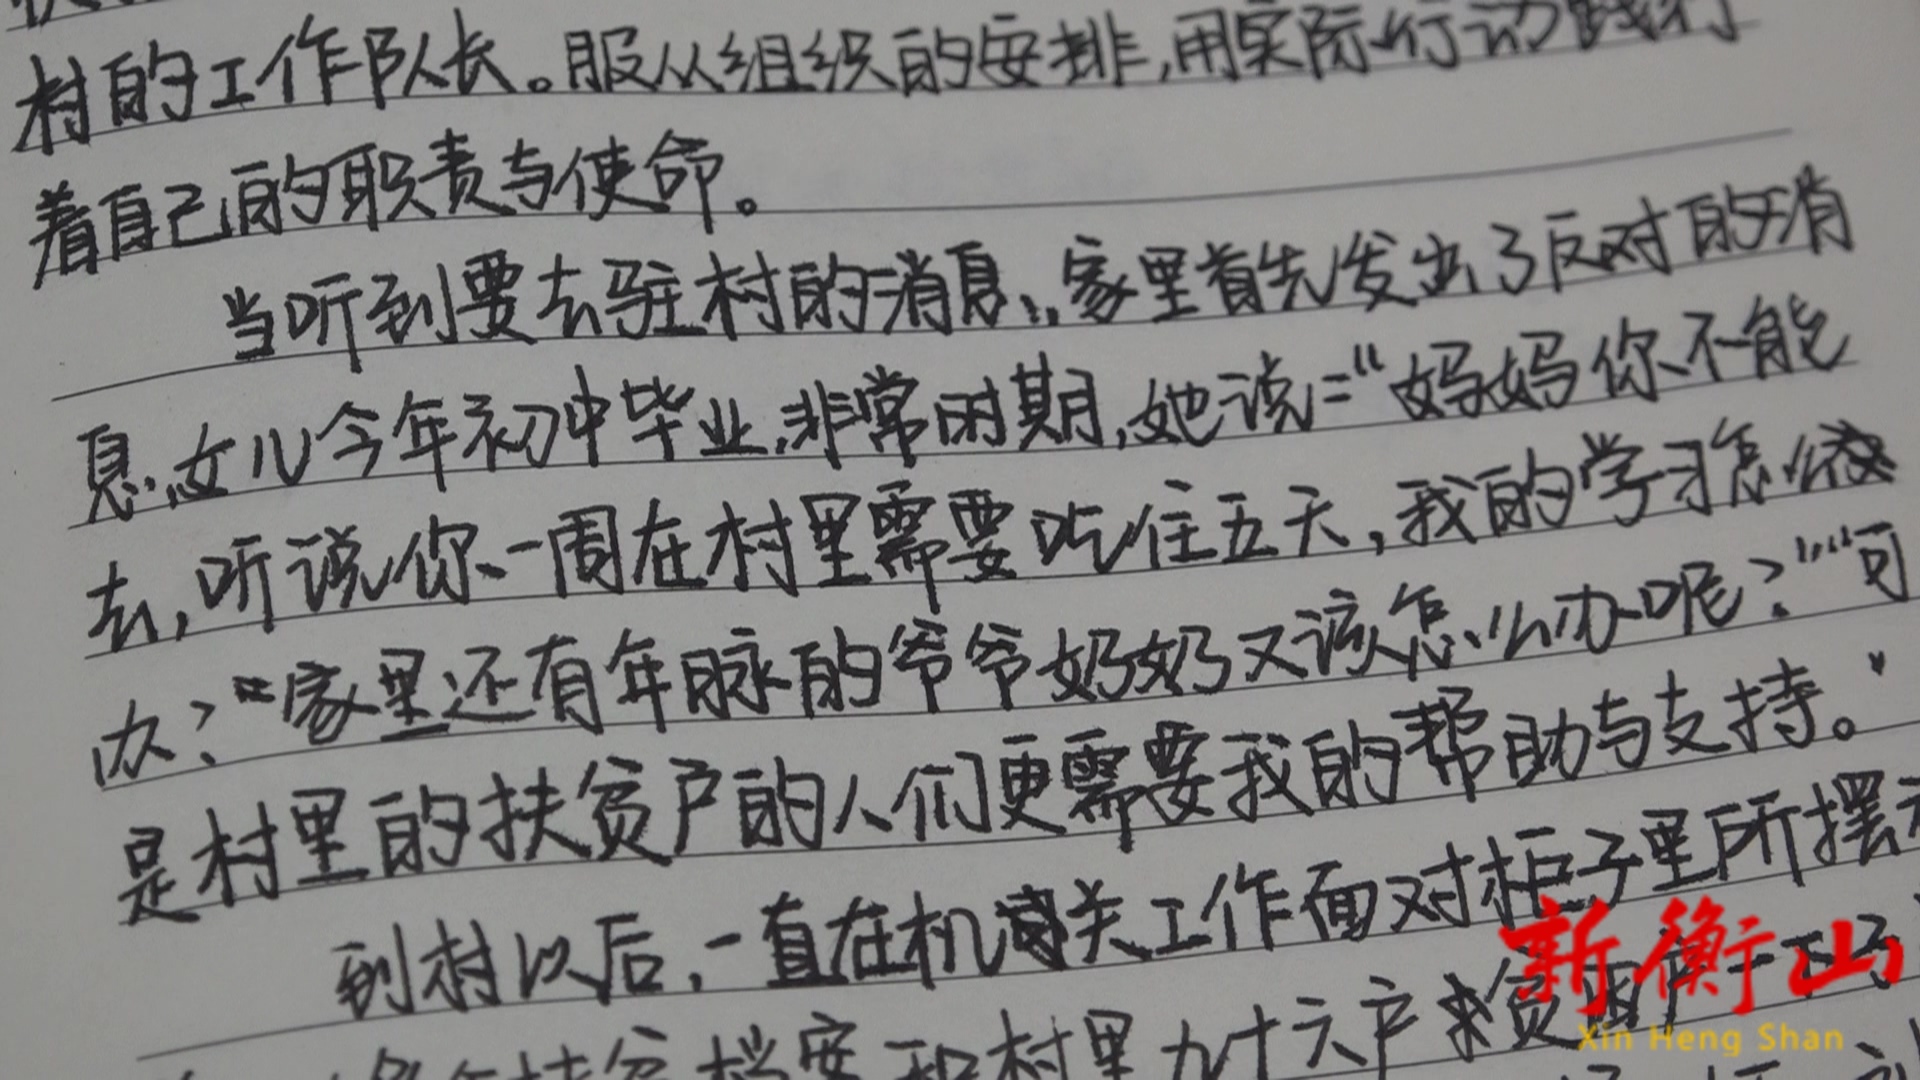 村的工作队长。服从组织的安排,用实际行动践行
着自己的职责与使命。
当听到要去驻村的消息,家里首先发出了反对的消
息.女儿今年初中毕业,非常时期,她说:“妈妈你不能
去,听说你一周在村里需要吃住五天,我的学习怎么
办?“家里还有年脉的爷爷奶奶又该怎么办呢?”“可
是村里的扶贫户的人们更需要我的帮助与支持。”
到村以后,一直在机关工作面对柜子里所摆
扶贫档案和村里九十六户贫困户一下子
新衡山
Xin Heng Shan